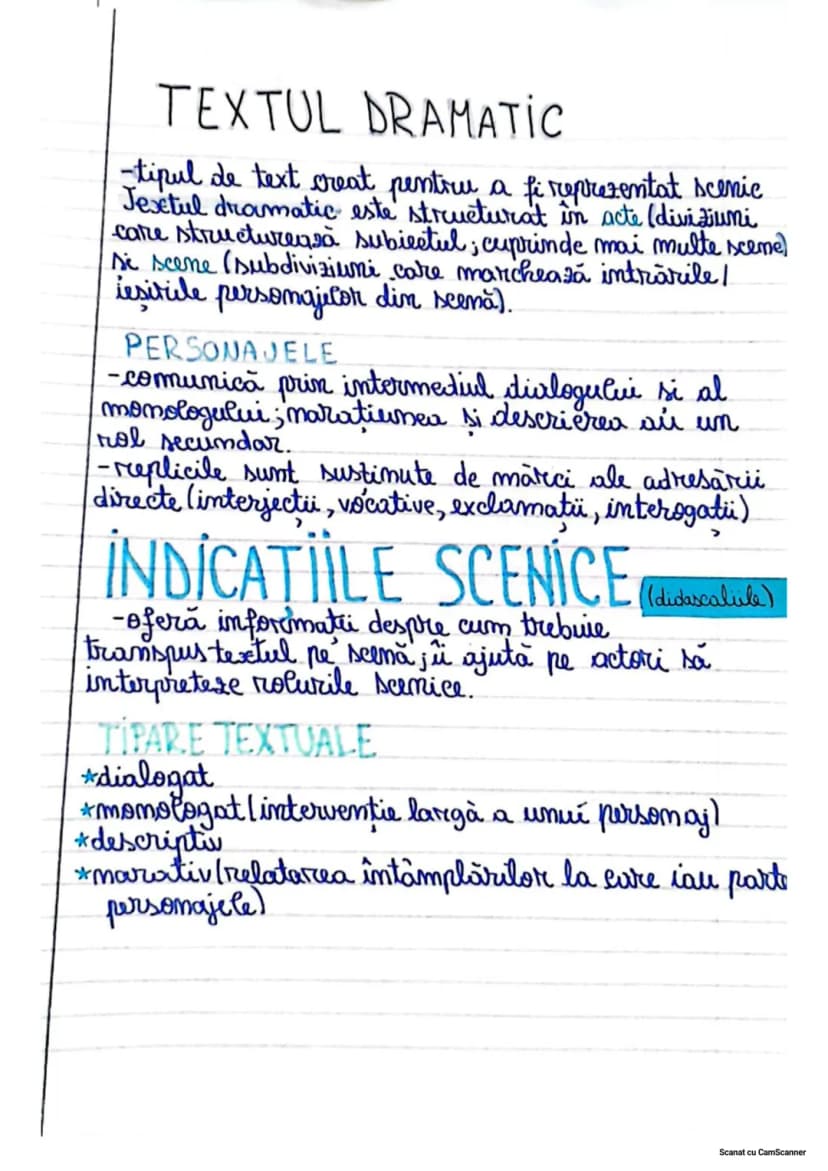 TEXTUL DRAMATIC
-tipul de text creat pentru a fi reprezentat scenic
Textul dramatic este structurat în acte (diviziuni
care structurează subiectul; cuprinde mai multe scene)
si scene (subdiviziuni care marchează intrările/
ieșirile personajelor din scenă).
PERSONAJELE
-comunică prin intermediul dialogului si al
monologului; narațiunea și descrierea au un
rol secundar.
-replicile sunt sustinute de mărci ale adresării
directe (interjecții, vocative, exclamații, interogații)
INDICATIILE SCENICE (didascaliile)
-oferă informații despre cum trebuie
transpus textul pe scenă; îi ajută pe actori să
interpreteze rolurile scenice.
TIPARE TEXTUALE
*dialogat
*monologat (intervenție largă a unui personaj)
*descriptiv
*narativ (relatarea întâmplărilor la care iau parte
personajele)
Scanat cu CamScanner